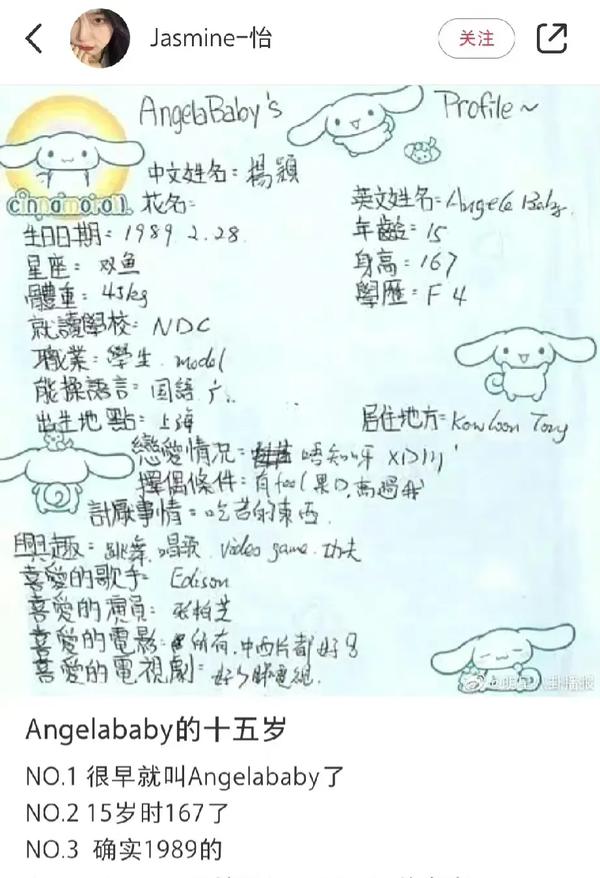 Jasmine-怡
关注
AngelaBaby's Profile~
cinnamoroll
中文姓名: 楊穎
花名: 英文姓名: Angela Baby
生日日期: 1989 2.28 年齡: 15
星座: 双鱼 身高: 167
體重: 45kg 學歷: F 4
就讀學校: NDC
職業: 學生. model
能操語言: 国語 广..
出生地點: 上海 居住地方: Kowloon Tong
戀愛情況: 唔知呀 XD)))'
擇偶條件: 有feel果D, 高過我
討厭事情: 吃苦的東西.
興趣: 跳舞. 唱歌. video game. 功夫
喜愛的歌手: Edison
喜愛的演員: 张柏芝
喜愛的電影: 所有. 中西片都好
喜愛的電視劇: 好少睇電視.
Angelababy的十五岁
NO.1 很早就叫Angelababy了
NO.2 15岁时167了
NO.3 确实1989的